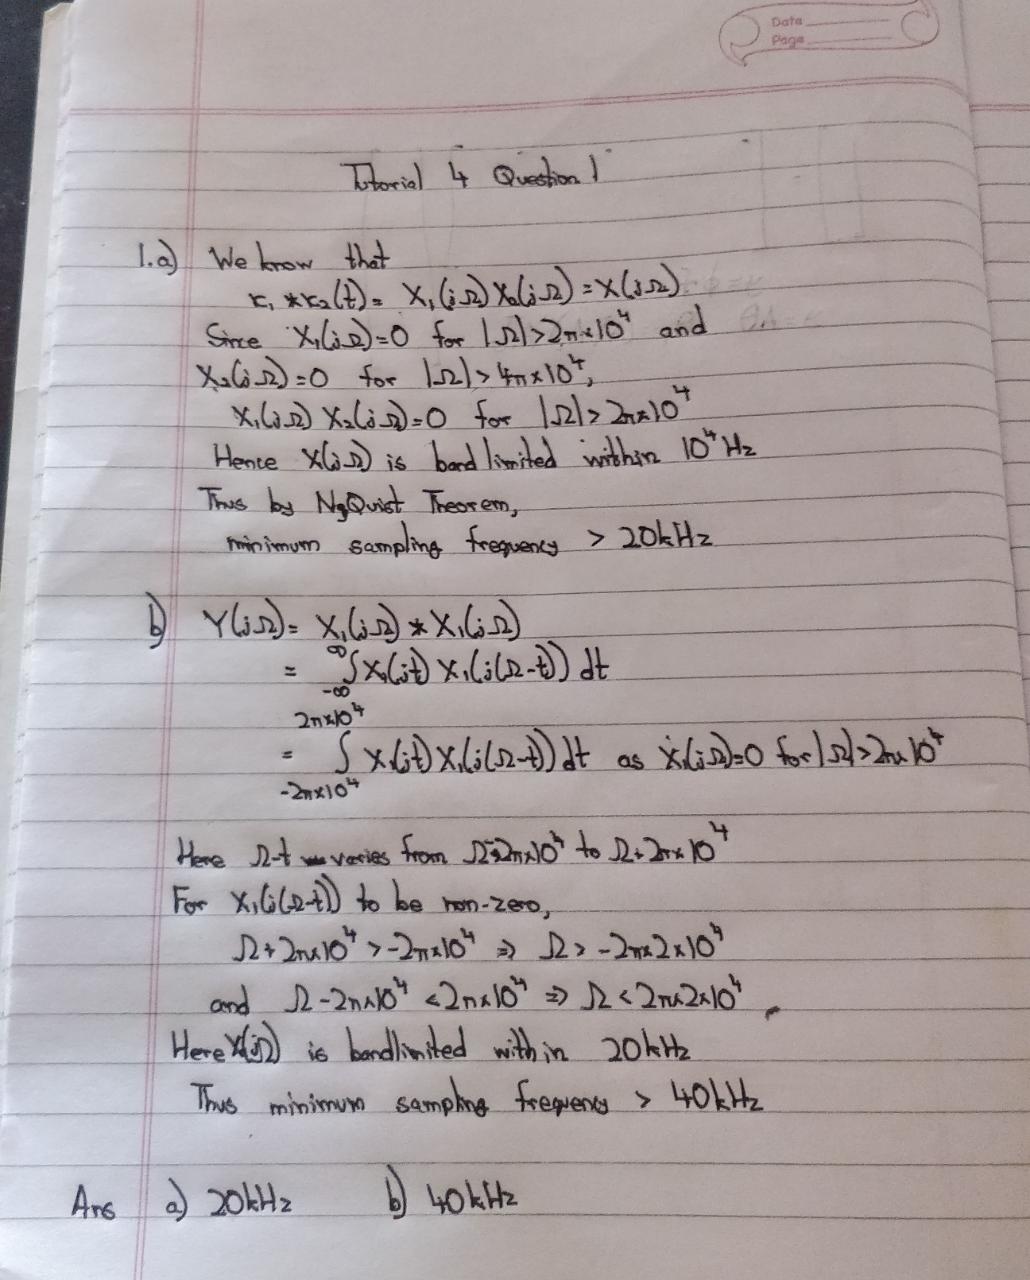 Data
Page
Tutorial 4 Question 1
1.a) We know that
x₁ * x₂(t) = X₁(jΩ) X₂(jΩ) = X(jΩ)
Since X₁(jΩ)=0 for |Ω|>2π×10⁴ and
X₂(jΩ)=0 for |Ω|>4π×10⁴,
X₁(jΩ) X₂(jΩ)=0 for |Ω|>2π×10⁴
Hence X(jΩ) is band limited within 10⁴ Hz
Thus by NyQuist Theorem,
minimum sampling frequency > 20kHz
b) Y(jΩ) = X₁(jΩ) * X₁(jΩ)
∞
= ∫X₁(jt) X₁(j(Ω-t)) dt
-∞
2π×10⁴
= ∫ X₁(jt) X₁(j(Ω-t)) dt as X₁(jΩ)=0 for |Ω|>2π×10⁴
-2π×10⁴
Here Ω-t varies from Ω-2π×10⁴ to Ω+2π×10⁴
For X₁(j(Ω-t)) to be non-zero,
Ω+2π×10⁴ > -2π×10⁴ ⇒ Ω > -2π×2×10⁴
and Ω-2π×10⁴ < 2π×10⁴ ⇒ Ω < 2π×2×10⁴
Here Y(jΩ) is bandlimited within 20kHz
Thus minimum sampling frequency > 40kHz
Ans a) 20kHz b) 40kHz